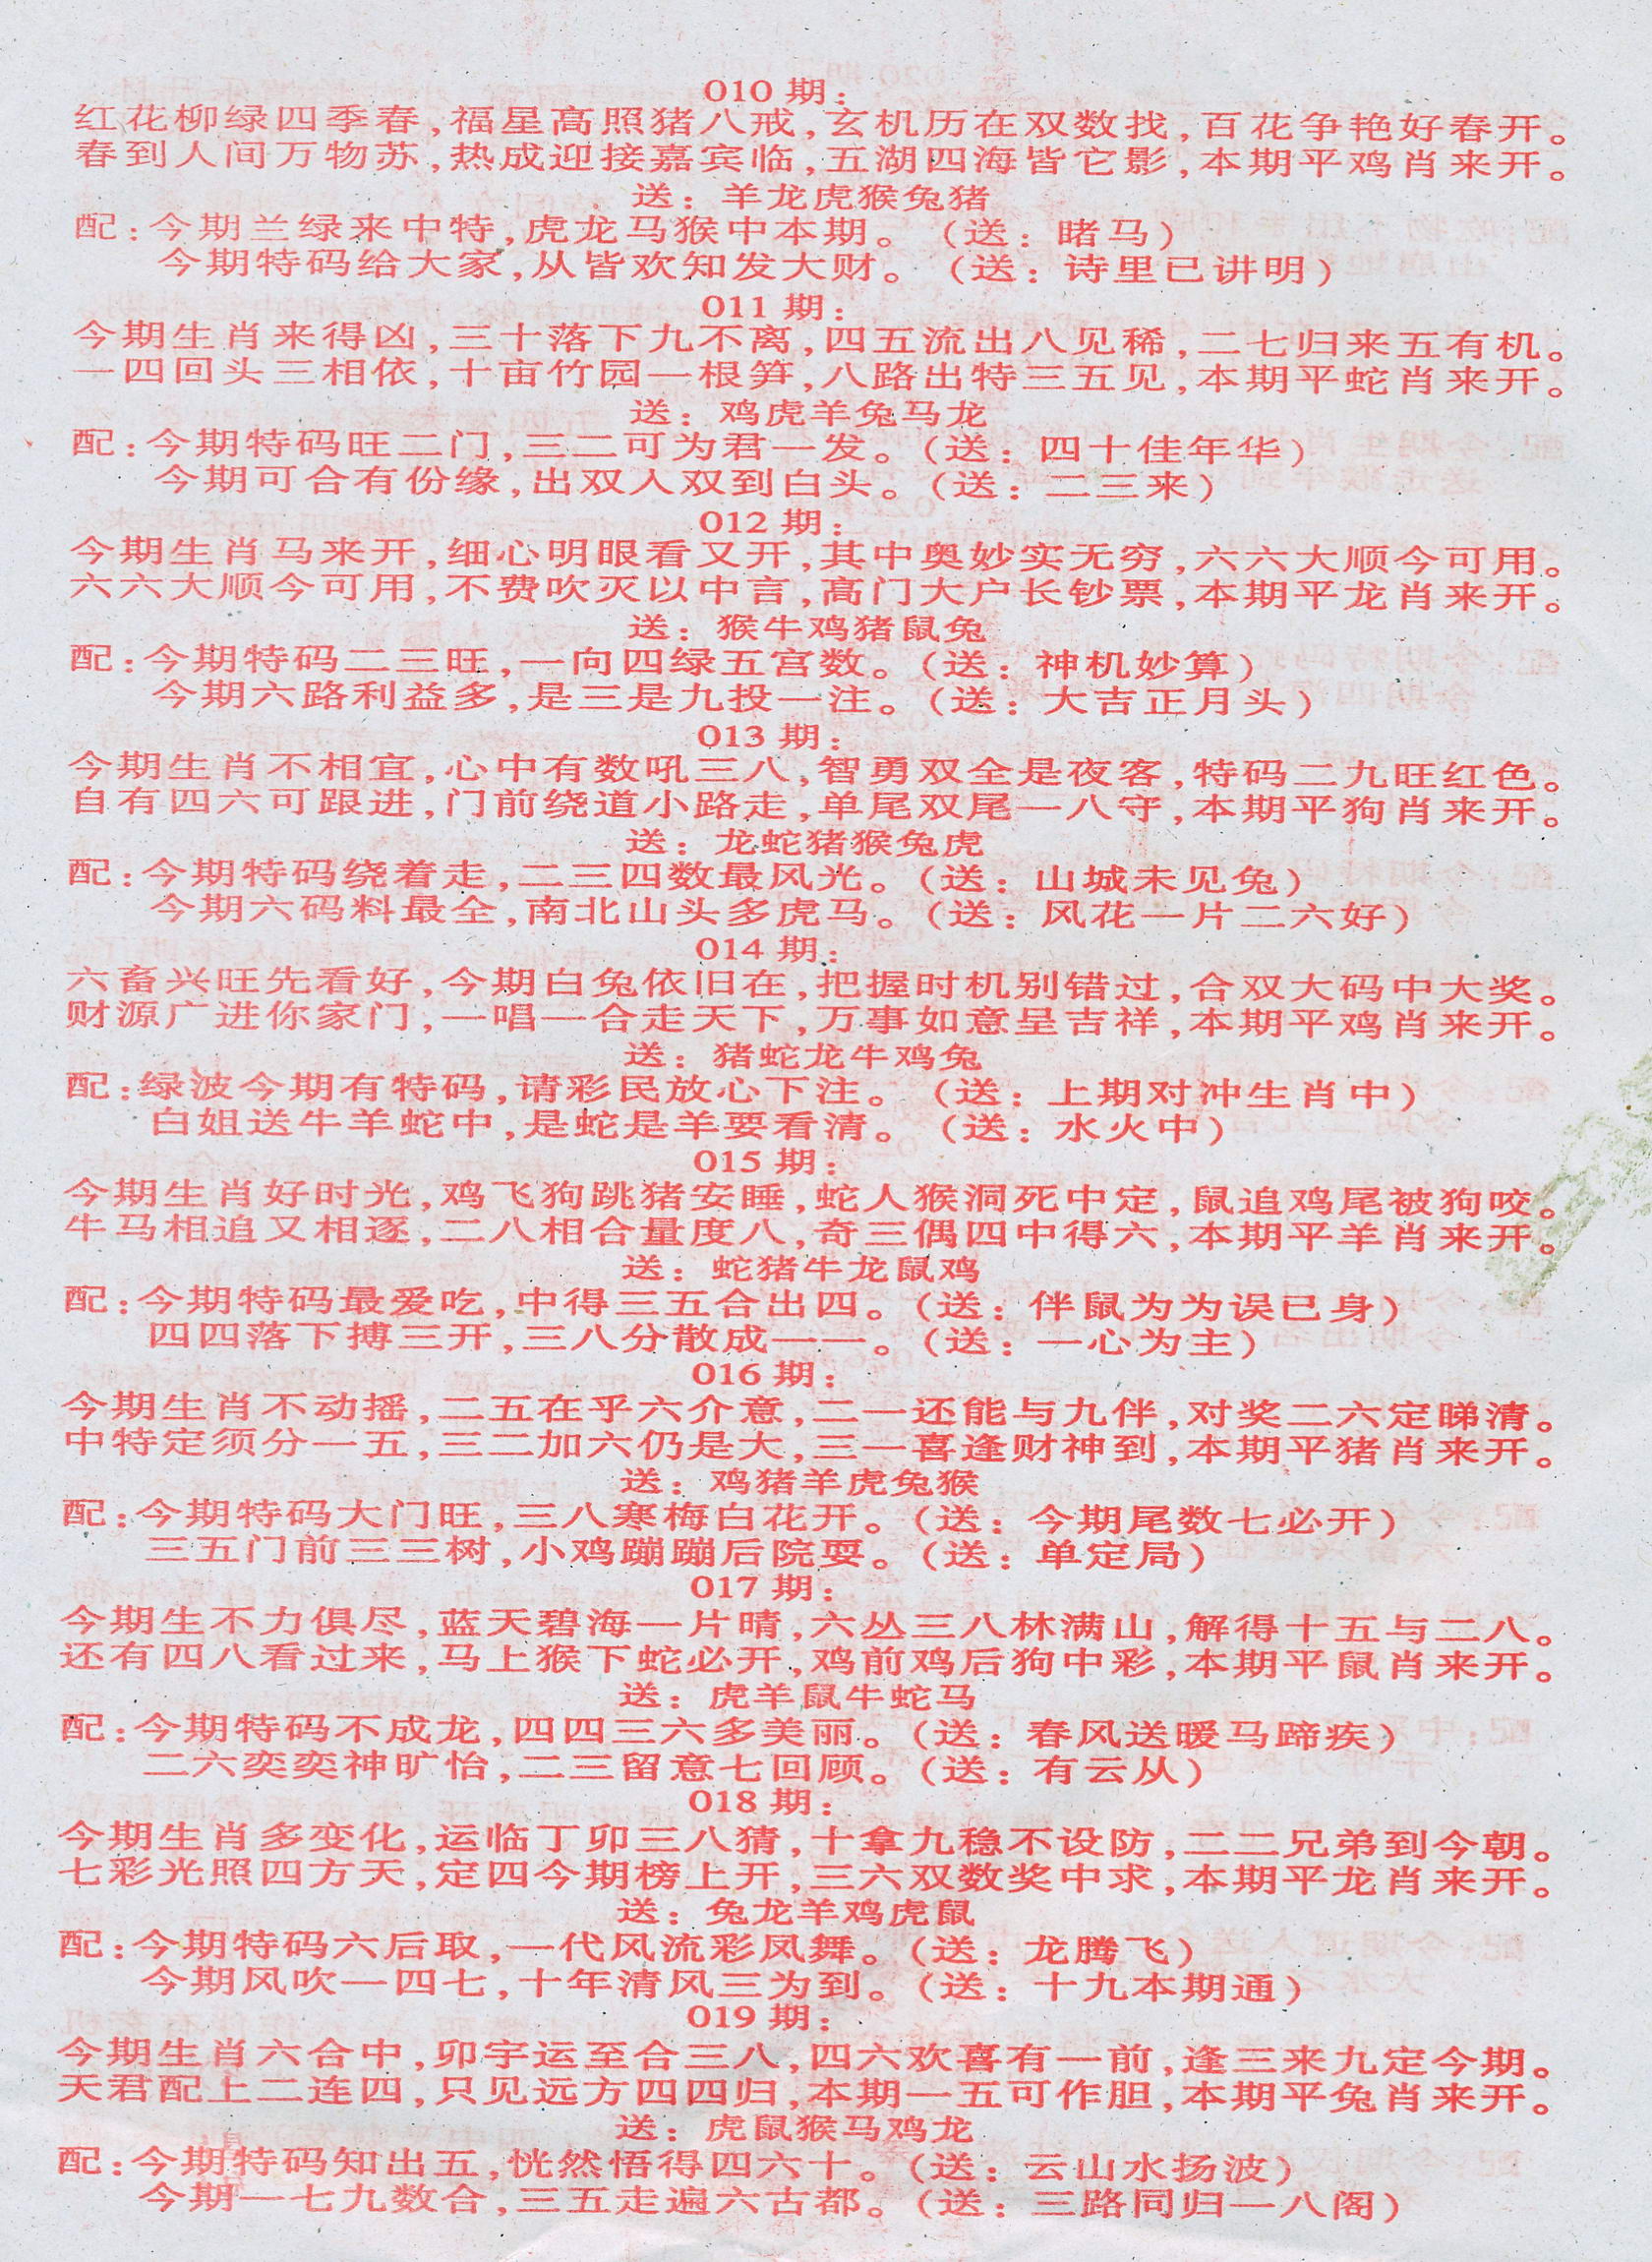 010 期：
红花柳绿四季春,福星高照猪八戒,玄机历在双数找,百花争艳好春开。
春到人间万物苏,热成迎接嘉宾临,五湖四海皆它影,本期平鸡肖来开。
送：羊龙虎猴兔猪
配:今期兰绿来中特,虎龙马猴中本期。（送：睹马）
今期特码给大家,从皆欢知发大财。（送：诗里已讲明）
011 期：
今期生肖来得凶,三十落下九不离,四五流出八见稀,二七归来五有机。
一四回头三相依,十亩竹园一根笋,八路出特三五见,本期平蛇肖来开。
送：鸡虎羊兔马龙
配:今期特码旺二门,三二可为君一发。（送：四十佳年华）
今期可合有份缘,出双入双到白头。（送：二三来）
012 期：
今期生肖马来开,细心明眼看又开,其中奥妙实无穷,六六大顺今可用。
六六大顺今可用,不费吹灭以中言,高门大户长钞票,本期平龙肖来开。
送：猴牛鸡猪鼠兔
配:今期特码二三旺,一向四绿五宫数。（送：神机妙算）
今期六路利益多,是三是九投一注。（送：大吉正月头）
013 期：
今期生肖不相宜,心中有数吼三八,智勇双全是夜客,特码二九旺红色。
自有四六可跟进,门前绕道小路走,单尾双尾一八守,本期平狗肖来开。
送：龙蛇猪猴兔虎
配:今期特码绕着走,二三四数最风光。（送：山城未见兔）
今期六码料最全,南北山头多虎马。（送：风花一片二六好）
014 期：
六畜兴旺先看好,今期白兔依旧在,把握时机别错过,合双大码中大奖。
财源广进你家门,一唱一合走天下,万事如意呈吉祥,本期平鸡肖来开。
送：猪蛇龙牛鸡兔
配:绿波今期有特码,请彩民放心下注。（送：上期对冲生肖中）
白姐送牛羊蛇中,是蛇是羊要看清。（送：水火中）
015 期：
今期生肖好时光,鸡飞狗跳猪安睡,蛇人猴洞死中定,鼠追鸡尾被狗咬。
牛马相追又相逐,二八相合量度八,奇三偶四中得六,本期平羊肖来开。
送：蛇猪牛龙鼠鸡
配:今期特码最爱吃,中得三五合出四。（送：伴鼠为为误已身）
四四落下搏三开,三八分散成一一。（送：一心为主）
016 期：
今期生肖不动摇,二五在乎六介意,二一还能与九伴,对奖二六定睇清。
中特定须分一五,三二加六仍是大,三一喜逢财神到,本期平猪肖来开。
送：鸡猪羊虎兔猴
配:今期特码大门旺,三八寒梅白花开。（送：今期尾数七必开）
三五门前三三树,小鸡蹦蹦后院耍。（送：单定局）
017 期：
今期生不力俱尽,蓝天碧海一片晴,六丛三八林满山,解得十五与二八。
还有四八看过来,马上猴下蛇必开,鸡前鸡后狗中彩,本期平鼠肖来开。
送：虎羊鼠牛蛇马
配:今期特码不成龙,四四三六多美丽。（送：春风送暖马蹄疾）
二六奕奕神旷怡,二三留意七回顾。（送：有云从）
018 期：
今期生肖多变化,运临丁卯三八猜,十拿九稳不设防,二二兄弟到今朝。
七彩光照四方天,定四今期榜上开,三六双数奖中求,本期平龙肖来开。
送：兔龙羊鸡虎鼠
配:今期特码六后取,一代风流彩凤舞。（送：龙腾飞）
今期风吹一四七,十年清风三为到。（送：十九本期通）
019 期：
今期生肖六合中,卯宇运至合三八,四六欢喜有一前,逢三来九定今期。
天君配上二连四,只见远方四四归,本期一五可作胆,本期平兔肖来开。
送：虎鼠猴马鸡龙
配:今期特码知出五,恍然悟得四六十。（送：云山水扬波）
今期一七九数合,三五走遍六古都。（送：三路同归一八阁）